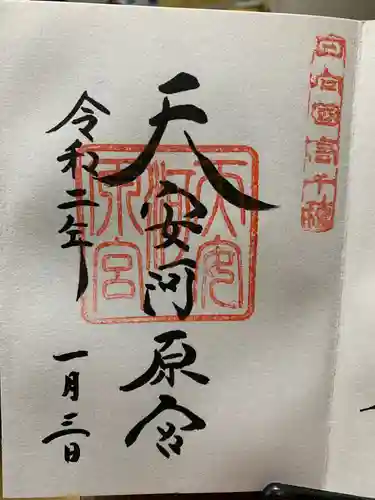 日向國高千穂
天安河原宮
天安河原宮
令和二年
一月三日